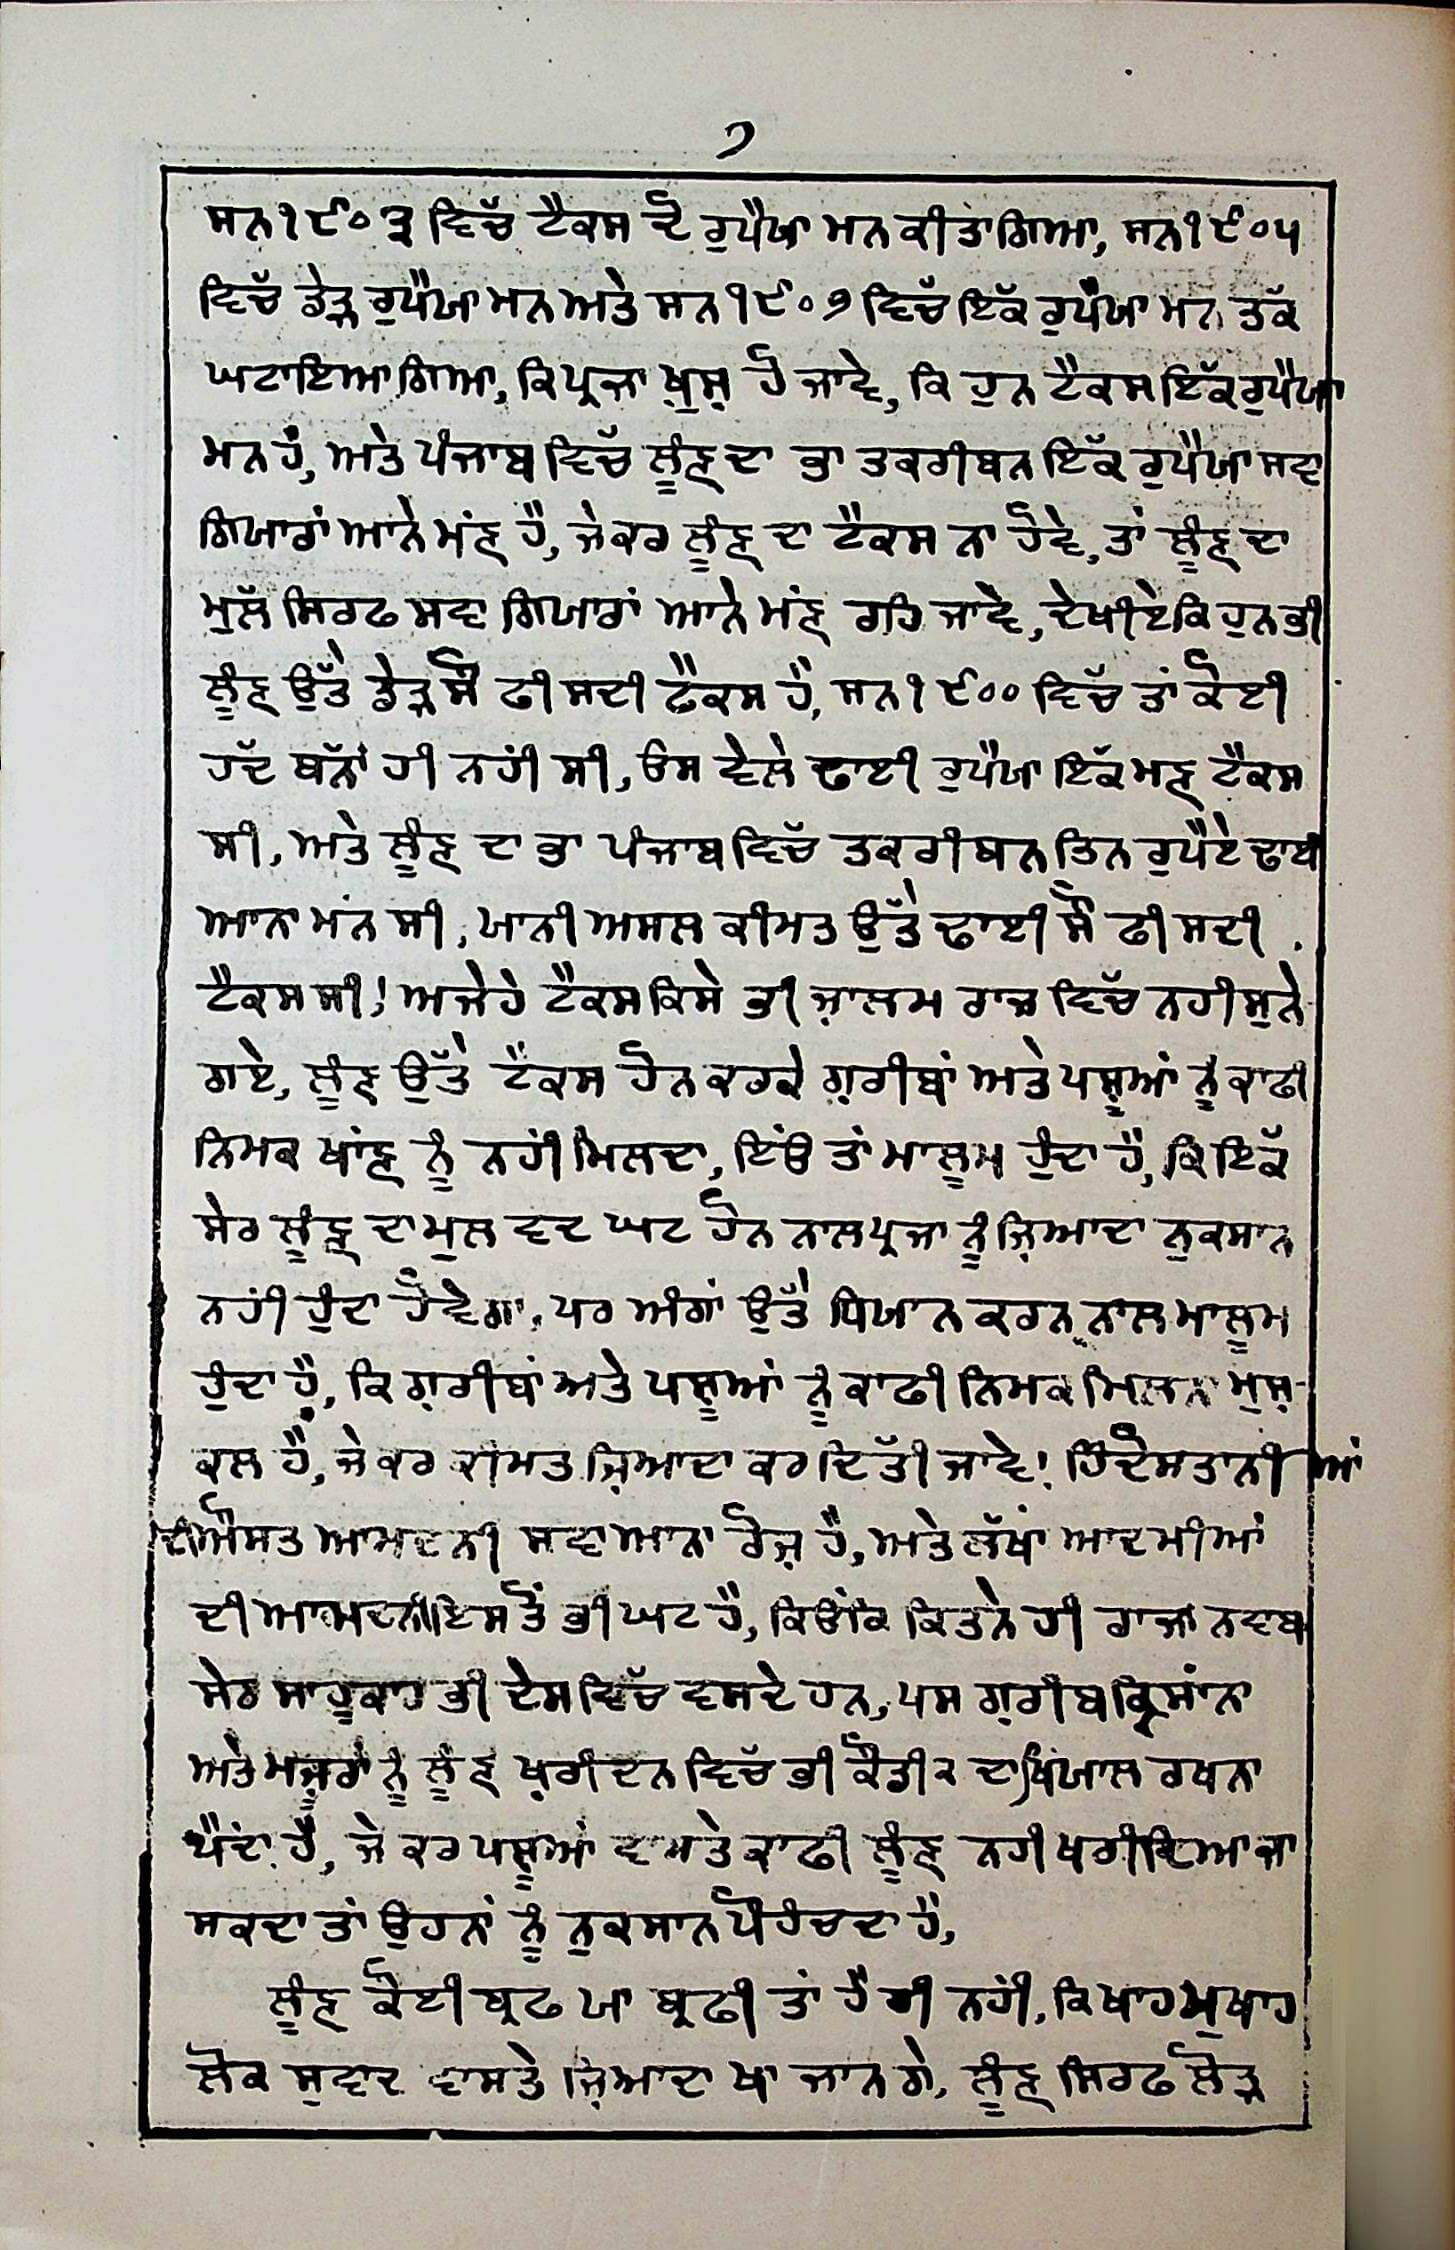 ੭
ਸਨ ੧੯੦੩ ਵਿਚੱ ਟੈਕਸ ਦੋ ਰੁਪੈਯਾ ਮਨ ਕੀਤਾ ਗਿਆ, ਸਨ ੧੯੦੫
ਵਿਚੱ ਡੇੜ੍ਹ ਰੁਪੈਯਾ ਮਨ ਅਤੇ ਸਨ ੧੯੦੭ ਵਿਚੱ ਇਕੱ ਰੁਪੈਯਾ ਮਨ ਤਕੱ
ਘਟਾਇਆ ਗਿਆ, ਕਿ ਪ੍ਰਜਾ ਖ਼ੁਸ਼ ਹੋ ਜਾਵੇ, ਕਿ ਹੁਨ ਟੈਕਸ ਇੱਕ ਰੁਪੈਯਾ
ਮਨ ਹੈ, ਅਤੇ ਪੰਜਾਬ ਵਿਚੱ ਲੂੰਣ ਦਾ ਭਾ ਤਕਰੀਬਨ ਇੱਕ ਰੁਪੈਯਾ ਸਵਾ
ਗਿਯਾਰਾਂ ਆਨੇ ਮੰਣ ਹੈ, ਜੇਕਰ ਲੂੰਣ ਦਾ ਟੈਕਸ ਨਾ ਹੋਵੇ, ਤਾਂ ਲੂੰਣ ਦਾ
ਮੁਲੱ ਸਿਰਫ ਸਵਾ ਗਿਯਾਰਾਂ ਆਨੇ ਮੰਣ ਰਹਿ ਜਾਵੇ, ਦੇਖੀਏ ਕਿ ਹੁਨ ਭੀ
ਲੂੰਣ ਉੱਤੇ ਡੇੜ੍ਹ ਸੌ ਫੀ ਸਦੀ ਟੈਕਸ ਹੈ, ਸਨ ੧੯੦੦ ਵਿਚੱ ਤਾਂ ਕੋਈ
ਹਦੱ ਬੰਨਾਂ ਹੀ ਨਹੀਂ ਸੀ, ਓਸ ਵੇਲੇ ਢਾਈ ਰੁਪੈਯਾ ਇੱਕ ਮਣ ਟੈਕਸ
ਸੀ, ਅਤੇ ਲੂੰਣ ਦਾ ਭਾ ਪੰਜਾਬ ਵਿਚੱ ਤਕਰੀਬਨ ਤਿਨ ਰੁਪੈਏ ਢਾਈ
ਆਨਾ ਮੰਨ ਸੀ, ਯਾਨੀ ਅਸਲ ਕੀਮਤ ਉੱਤੇ ਢਾਈ ਸੌ ਫੀ ਸਦੀ
ਟੈਕਸ ਸੀ! ਅਜੇਹੇ ਟੈਕਸ ਕਿਸੇ ਭੀ ਜ਼ਾਲਮ ਰਾਜ ਵਿਚੱ ਨਹੀ ਸੁਨੇ
ਗਏ, ਲੂੰਣ ਉੱਤੇ ਟੈਕਸ ਹੋਨ ਕਰਕੇ ਗ਼ਰੀਬਾਂ ਅਤੇ ਪਸ਼ੂਆਂ ਨੂੰ ਕਾਫੀ
ਨਿਮਕ ਖਾਂਣ ਨੂੰ ਨਹੀਂ ਮਿਲਦਾ, ਇੰਓ ਤਾਂ ਮਾਲੂਮ ਹੁੰਦਾ ਹੈ, ਕਿ ਇਕੱ
ਸੇਰ ਲੂੰਣ ਦਾ ਮੁਲ ਵਦ ਘਟ ਹੋਨ ਨਾਲ ਪ੍ਰਜਾ ਨੂੰ ਜ਼ਿਆਦਾ ਨੁਕਸਾਨ
ਨਹੀਂ ਹੁੰਦਾ ਹੋਵੇਗਾ, ਪਰ ਅੰਗਾਂ ਉੱਤੇ ਧਿਯਾਨ ਕਰਨ ਨਾਲ ਮਾਲੂਮ
ਹੁੰਦਾ ਹੈ, ਕਿ ਗ਼ਰੀਬਾਂ ਅਤੇ ਪਸ਼ੂਆਂ ਨੂੰ ਕਾਫੀ ਨਿਮਕ ਮਿਲਨਾ ਮੁਸ਼-
ਕਲ ਹੈ, ਜੇਕਰ ਕੀਮਤ ਜ਼ਿਆਦਾ ਕਰ ਦਿੱਤੀ ਜਾਵੇ! ਹਿੰਦੋਸਤਾਨੀਆਂ
ਦੀ ਔਸਤ ਆਮਦਨੀ ਸਵਾ ਆਨਾ ਰੋਜ਼ ਹੈ, ਅਤੇ ਲੱਖਾਂ ਆਦਮੀਆਂ
ਦੀ ਆਮਦਨੀ ਇਸ ਤੋਂ ਭੀ ਘਟ ਹੈ, ਕਿਓਂਕਿ ਕਿਤਨੇ ਹੀ ਰਾਜਾ ਨਵਾਬ
ਸੇਠ ਸਾਹੂਕਾਰ ਭੀ ਦੇਸ ਵਿੱਚ ਵਸਦੇ ਹਨ, ਪਸ ਗ਼ਰੀਬ ਕ੍ਰਿਸਾਂਨਾ
ਅਤੇ ਮਜੂਰਾਂ ਨੂੰ ਲੂੰਣ ਖ਼ਰੀਦਨ ਵਿਚੱ ਭੀ ਕੌਡੀ ੨ ਦਾ ਖਿਯਾਲ ਰਖਨਾ
ਪੈਂਦਾ ਹੈ, ਜੇਕਰ ਪਸ਼ੂਆਂ ਵਾਸਤੇ ਕਾਫੀ ਲੂੰਣ ਨਹੀ ਖਰੀਦਿਆ ਜਾ
ਸਕਦਾ ਤਾਂ ਉਹਨਾਂ ਨੂੰ ਨੁਕਸਾਨ ਪੌਹੰਚਦਾ ਹੈ,
ਲੂੰਣ ਕੋਈ ਬ੍ਰਫ ਯਾ ਬ੍ਰਫੀ ਤਾਂ ਹੈ ਹੀ ਨਹੀਂ, ਕਿ ਖਾਹ ਮੁਖਾਹ
ਲੋਕ ਸੁਵਾਦ ਵਾਸਤੇ ਜ਼ਿਆਦਾ ਖਾ ਜਾਨਗੇ, ਲੂੰਣ ਸਿਰਫ ਲੋੜ